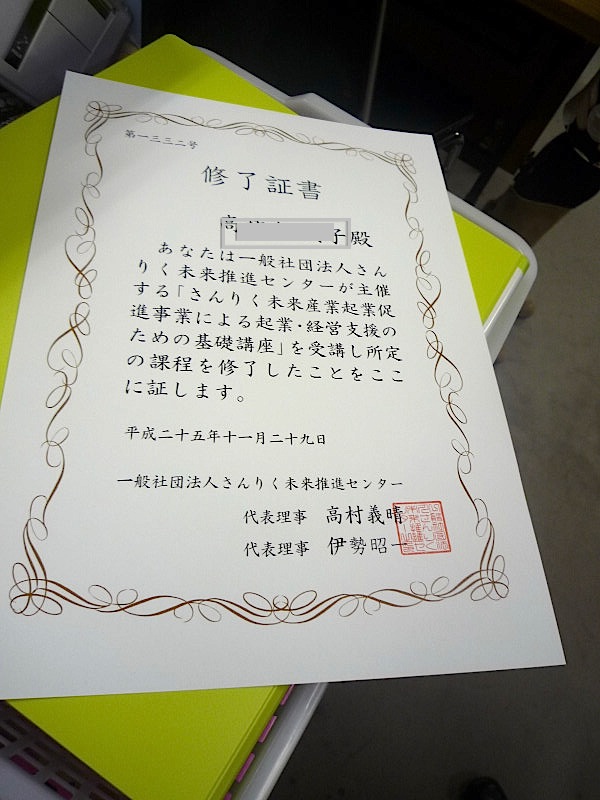 第一三三二号
修了証書
高 子殿
あなたは一般社団法人さん
りく未来推進センターが主催
する「さんりく未来産業起業促
進事業による起業・経営支援の
ための基礎講座」を受講し所定
の課程を修了したことをここ
に証します。
平成二十五年十一月二十九日
一般社団法人さんりく未来推進センター
代表理事 高村義晴
代表理事 伊勢昭一